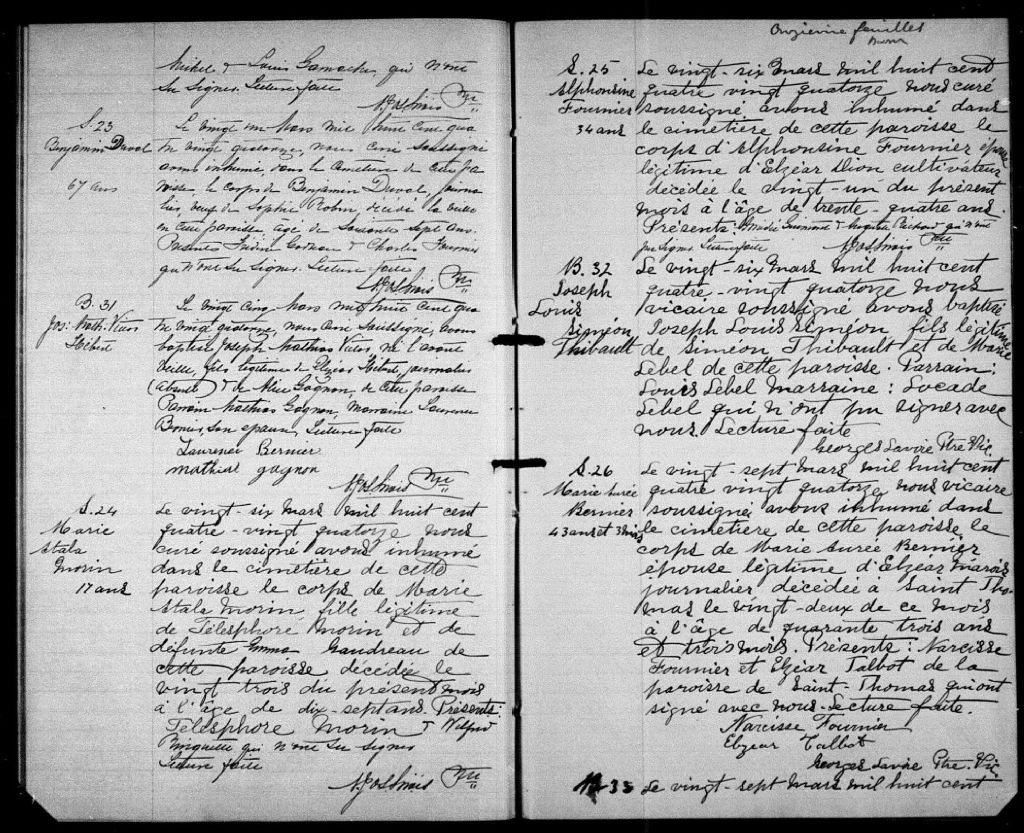 Michel & Louis Gamache, qui n'ont
su signer. Lecture faite
S. 23
Benjamin Duval
67 ans
Le vingt un Mars mil huit cent qua
tre vingt quatorze, nous curé soussigné
avons inhumé, dans le cimetière de cette pa
roisse, le corps de Benjamin Duval, journa
lier, veuf de Sophie Robin, décédé la veille
en cette paroisse, âgé de soixante sept ans.
Présents & Charles Fournier
qui n'ont su signer. Lecture faite
B. 31
Jos: Math. Victor
Hébert
Le vingt cinq Mars mil huit cent qua
tre vingt quatorze, nous curé soussigné, avons
baptisé Joseph Mathias Victor, né l'avant
veille, fils légitime de Elzéar Hébert, journalier
(absent) & de Alice Gagnon, de cette paroisse
Parrain Mathias Gagnon, Marraine Laurence
Bernier, son épouse, Lecture faite
Laurence Bernier
mathias gagnon
S. 24
Marie
Stala
Morin
17 ans
Le vingt-six Mars mil huit cent
quatre-vingt quatorze nous
curé soussigné avons inhumé
dans le cimetière de cette
paroisse le corps de Marie
Stala Morin, fille légitime
de Télesphore Morin et de
défunte Emma Gaudreau de
cette paroisse décédée le
vingt trois du présent mois
à l'âge de dix-sept ans. Présents:
Télesphore Morin & Wilfrid
qui n'ont su signer
Lecture faite
Onzième feuillet
S. 25
Alphonsine
Fournier
34 ans
Le vingt-six Mars mil huit cent
quatre vingt quatorze nous curé
soussigné avons inhumé dans
le cimetière de cette paroisse le
corps d'Alphonsine Fournier épouse
légitime d'Elzéar Dion cultivateur
décédée le vingt-un du présent
mois à l'âge de trente-quatre ans.
Présents: & qui n'ont
pu signer. Lecture faite
B. 32
Joseph
Louis
Siméon
Thibault
Le vingt-six Mars mil huit cent
quatre-vingt quatorze nous
vicaire soussigné avons baptisé
Joseph Louis Siméon fils légitime
de Siméon Thibault et de Marie
Lebel de cette paroisse. Parrain:
Louis Lebel Marraine: Locade
Lebel qui n'ont pu signer avec
nous. Lecture faite
Georges Savoie Ptre Vic.
S. 26
Marie Aurée
Bernier
43 ans et 3 mois
Le vingt-sept Mars mil huit cent
quatre vingt quatorze nous vicaire
soussigné avons inhumé dans
le cimetière de cette paroisse le
corps de Marie Aurée Bernier
épouse légitime d'Elzéar Marois
journalier décédée à Saint Tho-
mas le vingt-deux de ce mois
à l'âge de quarante trois ans
et trois mois. Présents: Narcisse
Fournier et Elzéar Talbot de la
paroisse de Saint-Thomas qui ont
signé avec nous. Lecture faite.
Narcisse Fournier
Elzear Talbot
Georges Savoie Ptre. Vic
B 33
Le vingt-sept Mars mil huit cent